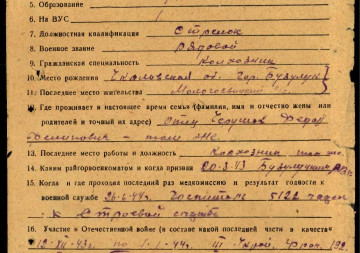 5. Образование
6. На ВУС
7. Должностная квалификация Стрелок
8. Военное звание рядовой
9. Гражданская специальность колхозник
10. Место рождения Чкаловская об. гор. Бузулук
11. Последнее место жительства
12. Где проживает в настоящее время семья (фамилия, имя и отчество жены или
родителей и точный их адрес) Отец
Филиппович - там же
13. Последнее место работы и должность Колхозник там же
14. Каким райгорвоенкоматом и когда призван 20-3-43 Бузулукским
15. Когда и где проходил последний раз медкомиссию и результат годности к
военной службе 26-6-44г. Госпиталь 5122 годен
к строевой службе
16. Участие в Отечественной войне (в составе какой последней части в качестве
12-XII-43г. по 1-1-44г. III Укр. Фрон.